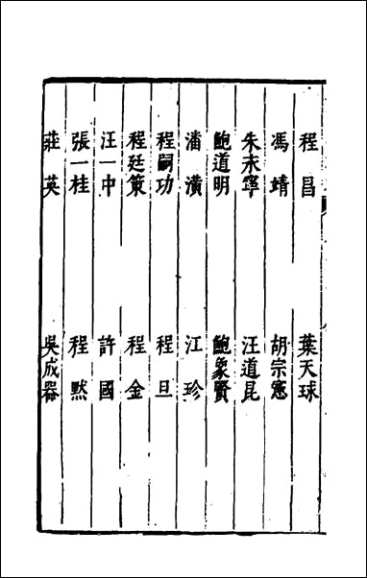 程昌　葉天球
馮靖　胡宗憲
朱末寧　汪道昆
鮑道明　鮑象賢
潘潢　江珍
程嗣功　程旦
程廷策　程金
汪一中　許國
張一桂　程默
莊英　吳成器